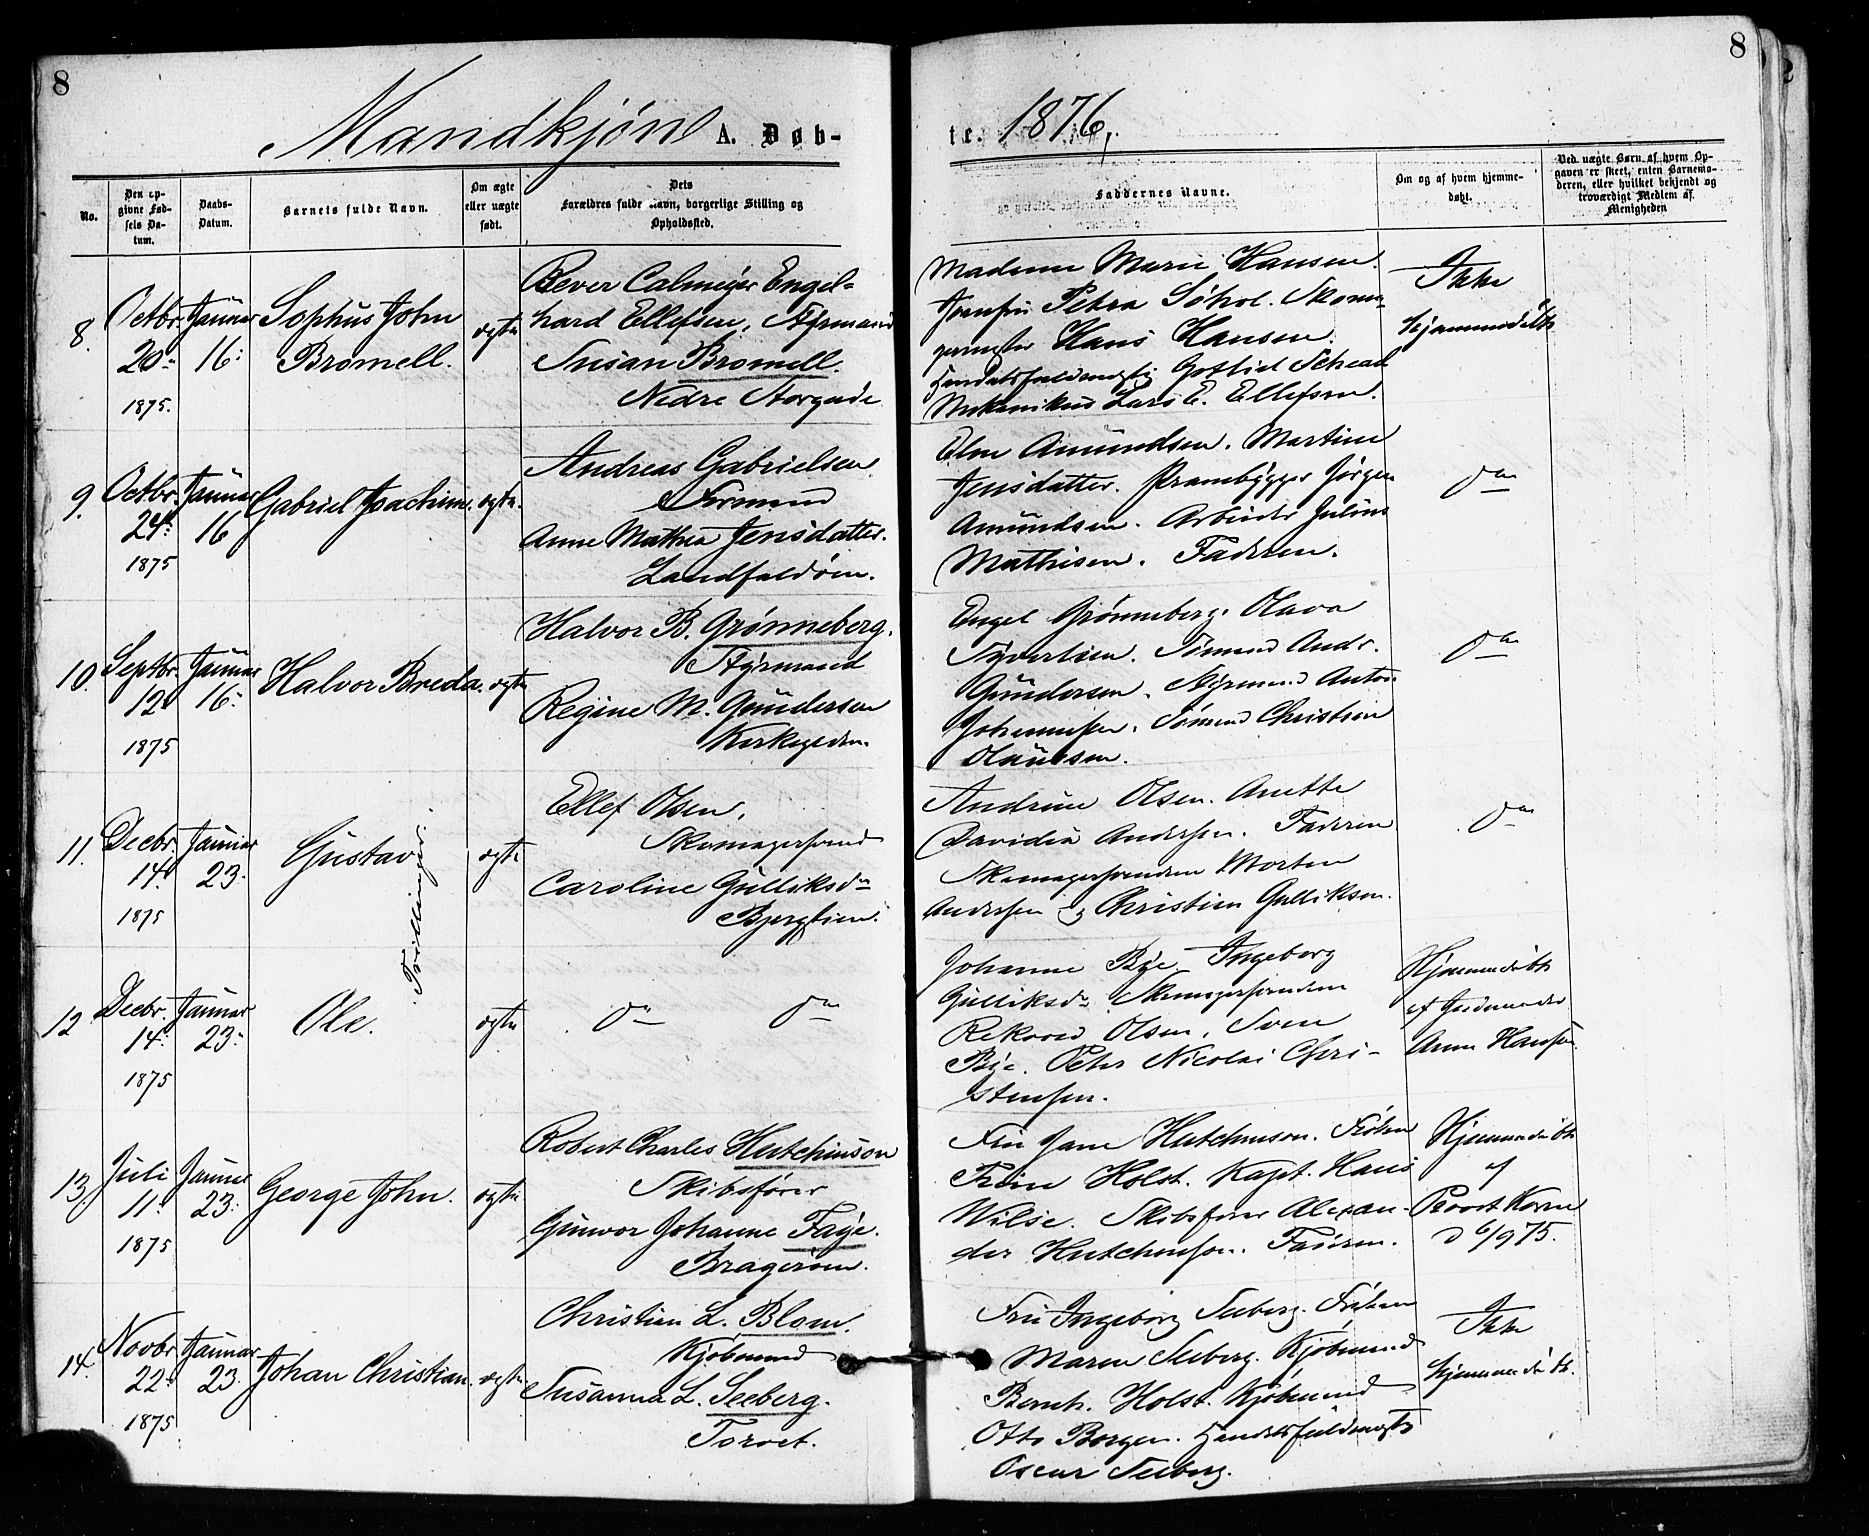 8
8
Mandkjøn A. Døb-
te. 1876,
No.
Den op-
givne Fød-
sels Da-
tum.
Daabs-
Datum.
Barnets fulde Navn.
Om ægte
eller uægte
født.
Dets
Forældres fulde Navn, borgerlige Stilling og
Opholdssted.
Faddernes Navne.
Om og af hvem hjemme-
døbt.
Ved uægte Børn af hvem Op-
gaven er skeet, enten Barnemo-
deren, eller hvilket bekjendt og
troværdigt Medlem af
Menigheden
8.
Octbr.
20
1875.
Januar
16
Sophus John
Bromell.
ægte
Bever Calmeyer Engel-
hard Ellefsen, Styrmand
Susan Bromell.
Nedre Storgade
Madame Marie Hansen.
Jomfru Petra
Hans Hansen.
Gotlid
Mekanikus Lars E. Ellefsen.
Ikke
hjemmedøbt
9.
Octbr.
24
1875
Januar
16
Gabriel Joachim.
ægte.
Andreas Gabrielsen
Formand
Anne Mathea Jensdatter.
Landfaldøen.
Amundsen. Martine
Jensdatter. Prambygger Jørgen
Amundsen. Arbeider Julius
Mathisen. Faderen.
do
10.
Septbr.
12
1875
Januar
16
Halvor Breda.
ægte
Halvor B. Grønneberg.
Styrmand
Regine M. Gundersen
Kirkegaden.
Engel Grønneberg. Olava
Syvertsen. Sømand Andr.
Gundersen. Styrmand Anton
Johannessen. Sømand Christian
Olaussen.
do
11.
Decbr.
14
1875
Januar
23
Gustav
Tvillinger.
ægte
Ellef Olsen,
Skomagersvend
Caroline Gulliksdr
Bjergstien.
Andrine Olsen. Anette
Davidea Andersen. Faderen
Skomagersvendene Morten
Andersen og Christian Gulliksen.
do
12
Decbr.
14
1875
Januar
23
Ole.
ægte
do do
Johanne Bye Ingeborg
Gulliksdr Skomagersvendene
Olsen, Sven
Bye. Peter Nicolai Chri-
stensen.
Hjemmedøbt
af Jordemoder
Anne Hansen.
13
Juli
11
1875
Januar
23
George John.
ægte
Robert Charles Hutchinson
Skibsfører
Gunvor Johanne Faye.
Bragerøen.
Fru Jane Hutchinson. Frøken
Holst. Kapt. Hans
Wilse. Skibsfører Alexan-
der Hutchinson. Faderen.
Hjemmedøbt
af
Provst
d 6/9 75.
14.
Novbr
22
1875
Januar
23.
Johan Christian.
ægte
Christian L. Blom.
Kjøbmand
Susanna L. Seeberg.
Torvet.
Fru Ingeborg Seeberg. Frøken
Maren Seeberg. Kjøbmand
Bernh. Holst. Kjøbmand
Otto Borgen. Handelsfuldmægt.
Oscar Seeberg.
Ikke
hjemmedøbt.